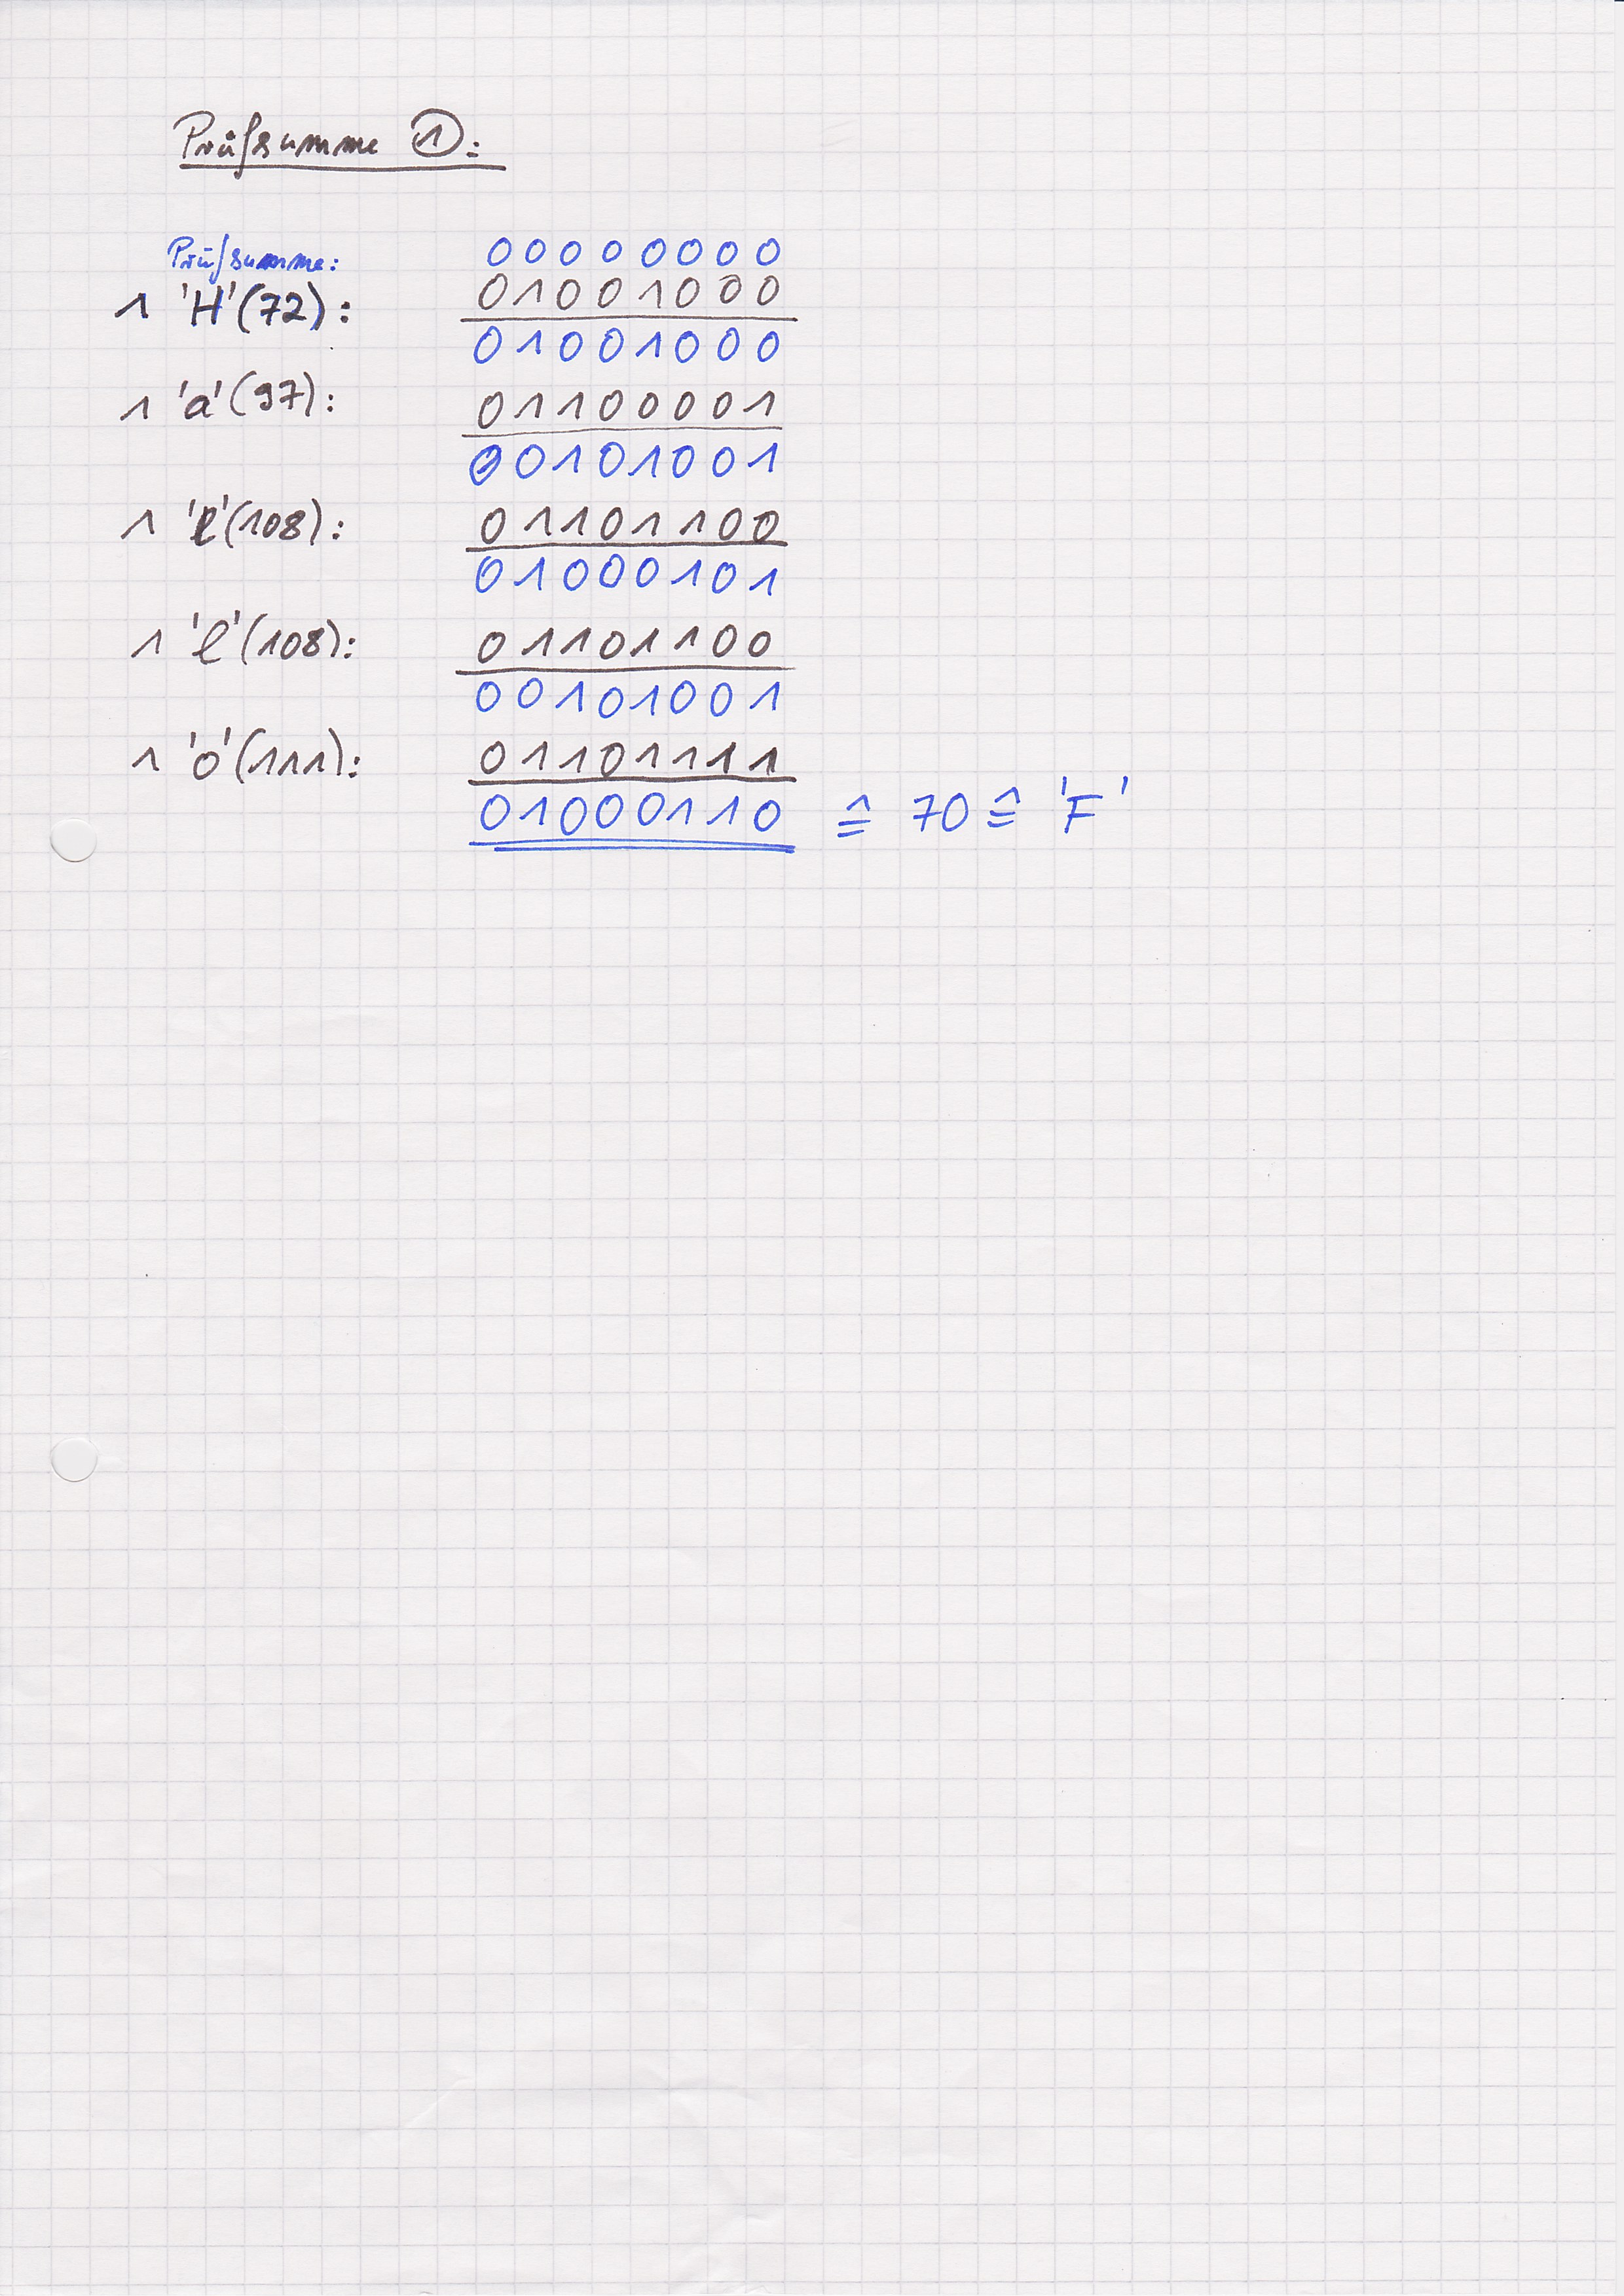 Prüfsumme ①:
Prüfsumme: 00000000
1 'H'(72): 01001000
01001000
1 'a'(97): 01100001
00101001
1 'l'(108): 01101100
01000101
1 'l'(108): 01101100
00101001
1 'o'(111): 01101111
01000110 ≙ 70 ≙ 'F'